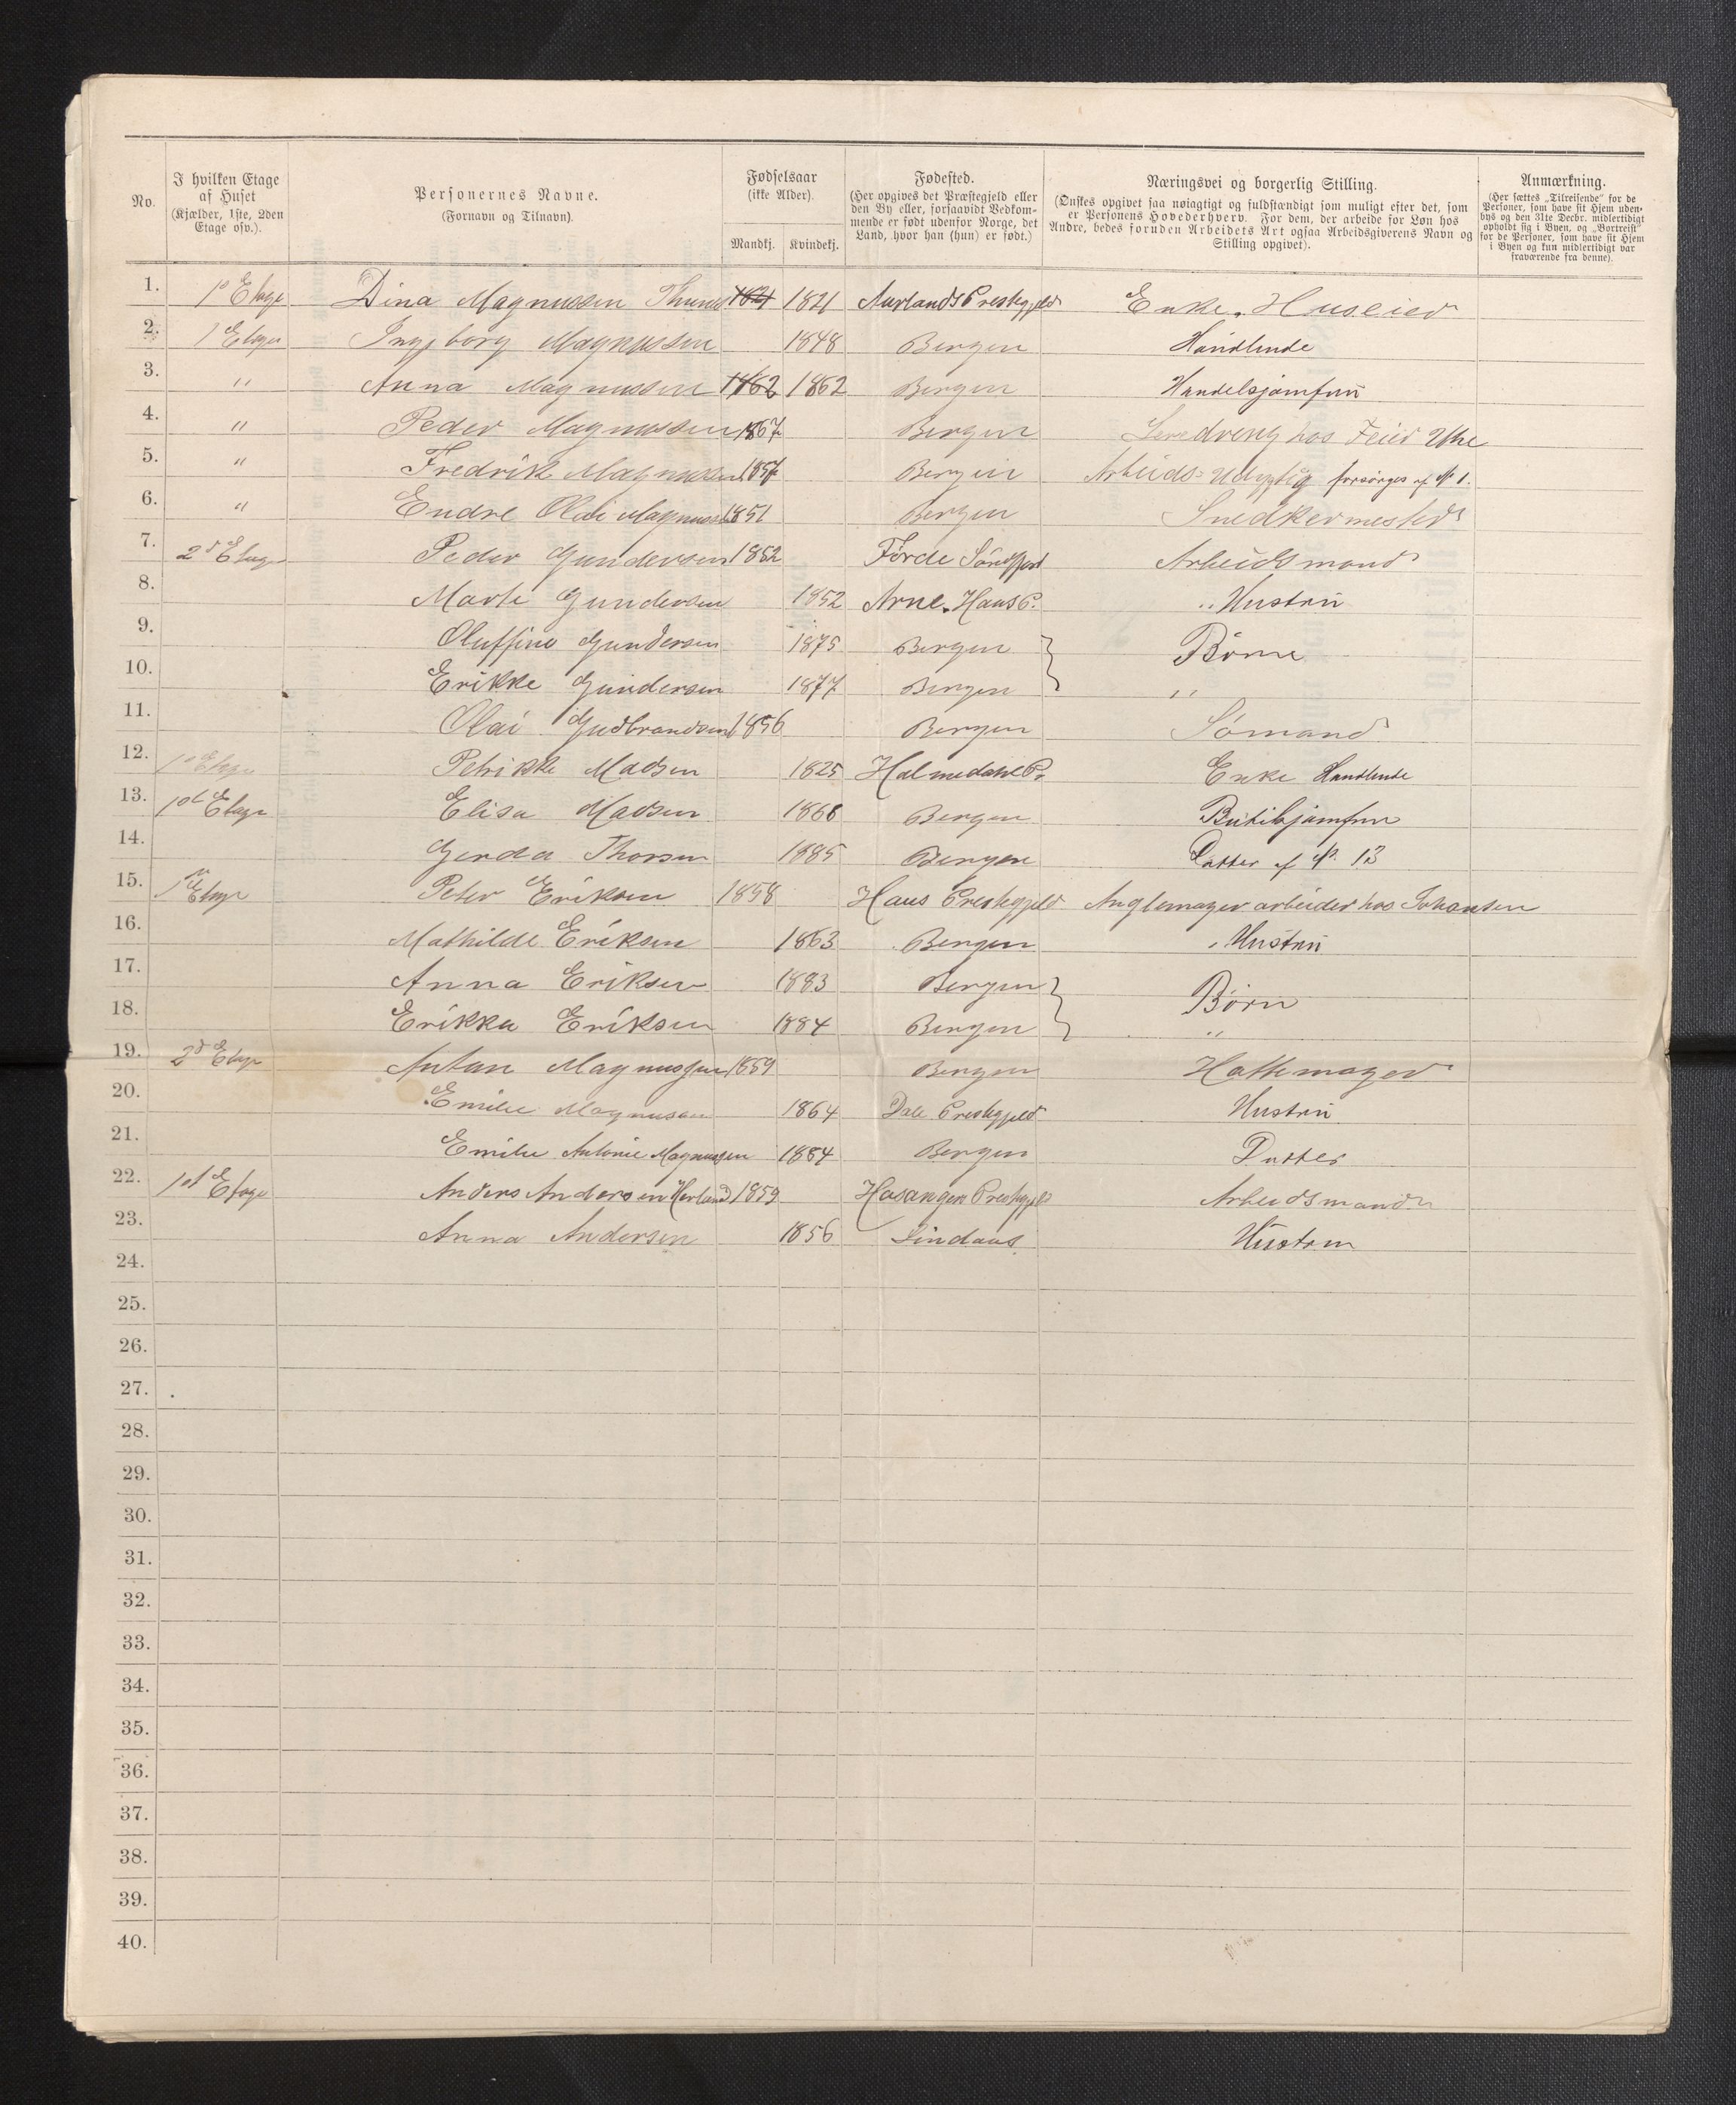 No. I hvilken Etage af Huset (Kjælder, 1ste, 2den Etage osv.). Personernes Navne. (Fornavn og Tilnavn). Fødselsaar (ikke Alder). Mandkj. Kvindekj. Fødested. (Her opgives det Præstegjeld eller den By eller, forsaavidt Vedkommende er født udenfor Norge, det Land, hvor han (hun) er født.) Næringsvei og borgerlig Stilling. (Ønskes opgivet saa nøiagtigt og fuldstændigt som muligt efter det, som er Personens Hovederhverv. For dem, der arbeide for Løn hos Andre, bedes foruden Arbeidets Art ogsaa Arbeidsgiverens Navn og Stilling opgivet). Anmærkning. (Her sættes „Tilreisende" for de Personer, som have sit Hjem udenbys og den 31te Decbr. midlertidigt opholdt sig i Byen, og „Bortreist" for de Personer, som have sit Hjem i Byen og kun midlertidigt var fraværende fra denne).
1. 1e Etage Dina Magnussen 1821 1821 Aurlands Prestegjeld Enke. Huseier
2. 1 Etage Ingeborg Magnussen 1848 Bergen Handlende
3. " Anna Magnussen 1862 1862 Bergen Handelsjomfru
4. " Peder Magnussen 1867 Bergen Leredreng hos Feier
5. " Fredrik Magnussen 1857 Bergen Arbeids-Udygtig forsørges af No 1.
6. " Endre Olai Magnussen 1851 Bergen Snedkermester
7. 2d Etage Peder Gundersen 1852 Førde Søndfjord Arbeidsmand
8. Marte Gundersen 1852 Arne. Haus P. " Hustru
9. Oluffine Gundersen 1875 Bergen } Børne
10. Erikke Gundersen 1877 Bergen "
11. Olai Gudbrandsen 1856 Bergen Sømand
12. 1e Etage Petrikke Madsen 1825 Holmedahl P. Enke Handlende
13. 1st Etage Elisa Madsen 1866 Bergen Butikjomfru
14. Gerda Thorsen 1885 Bergen Datter af No. 13
15. 1 Etage Peter Eriksen 1858 Haus Prestegjeld Anglemager arbeider hos Johansen
16. Mathilde Eriksen 1863 Bergen Hustru
17. Anna Eriksen 1883 Bergen } Børn
18. Erikka Eriksen 1884 Bergen "
19. 2d Etage Anton Magnussen 1859 Bergen Hattemager
20. Emilie Magnussen 1864 Dale Prestegjeld Hustru
21. Emilie Antonie Magnussen 1884 Bergen Datter
22. 1st Etage Anders Andersen 1859 Hosanger Prestegjeld Arbeidsmand
23. Anna Andersen 1856 Lindaas Hustru
24.
25.
26.
27.
28.
29.
30.
31.
32.
33.
34.
35.
36.
37.
38.
39.
40.